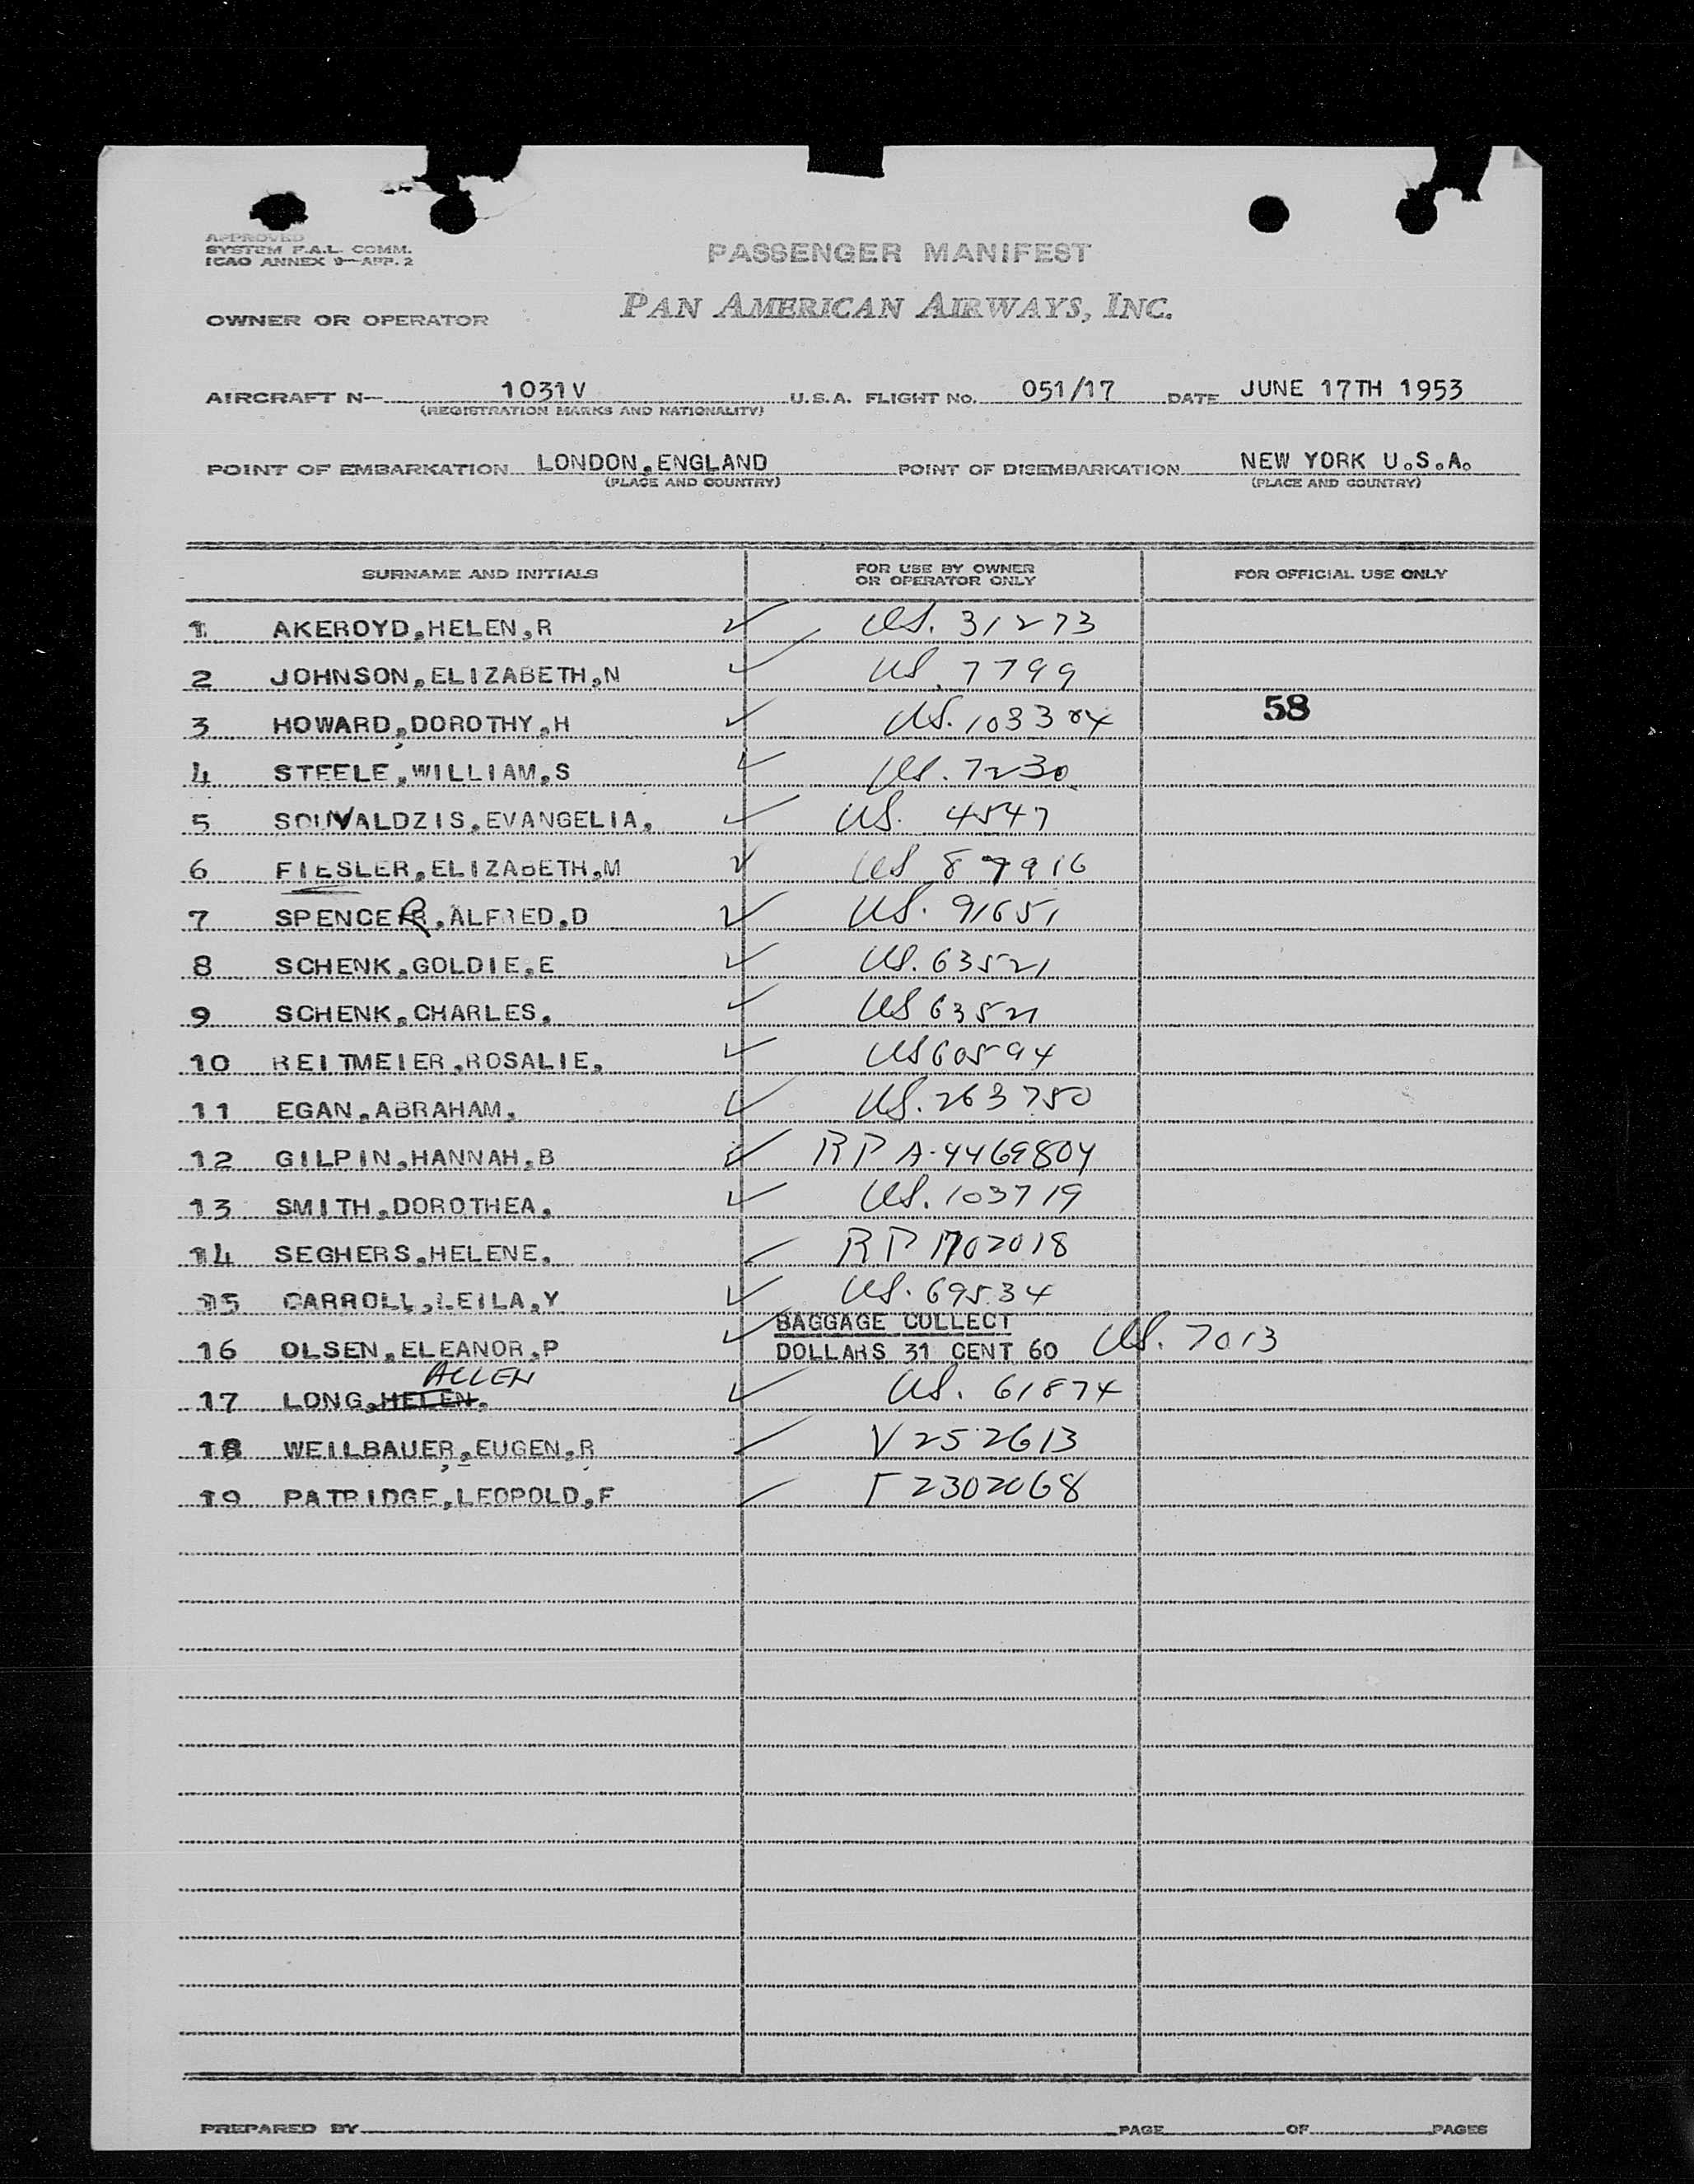 APPROVED
SYSTEM F.A.L. COMM.
ICAO ANNEX 9—APP. 2
PASSENGER MANIFEST
OWNER OR OPERATOR PAN AMERICAN AIRWAYS, INC.
AIRCRAFT N— 1031V U.S.A. FLIGHT No. 051/17 DATE JUNE 17TH 1953
(REGISTRATION MARKS AND NATIONALITY)
POINT OF EMBARKATION LONDON,ENGLAND POINT OF DISEMBARKATION NEW YORK U.S.A.
(PLACE AND COUNTRY) (PLACE AND COUNTRY)
SURNAME AND INITIALS FOR USE BY OWNER OR OPERATOR ONLY FOR OFFICIAL USE ONLY
1 AKEROYD,HELEN,R ✓ US. 31273
2 JOHNSON,ELIZABETH,N ✓ US. 7799
58
3 HOWARD,DOROTHY,H ✓ US. 103304
4 STEELE,WILLIAM,S ✓ US. 7230
5 SOUVALDZIS,EVANGELIA, ✓ US. 4547
6 FIESLER,ELIZABETH,M ✓ US 87916
7 SPENCER,ALFRED,D ✓ US. 91651
8 SCHENK,GOLDIE,E ✓ US. 63521
9 SCHENK,CHARLES, ✓ US 63521
10 REITMEIER,ROSALIE, ✓ US 60594
11 EGAN,ABRAHAM, ✓ US. 263750
12 GILPIN,HANNAH,B ✓ RP A-4469804
13 SMITH,DOROTHEA, ✓ US. 103719
14 SEGHERS,HELENE, ✓ RP 1702018
15 CARROLL,LEILA,Y ✓ US. 69534
BAGGAGE COLLECT
16 OLSEN,ELEANOR,P ✓ DOLLARS 31 CENT 60 US. 7013
ALLEN
17 LONG,HELEN, ✓ US. 61874
18 WEILBAUER,EUGEN,R ✓ V 252613
19 PATRIDGE,LEOPOLD,F ✓ 2302068
PREPARED BY PAGE OF PAGES